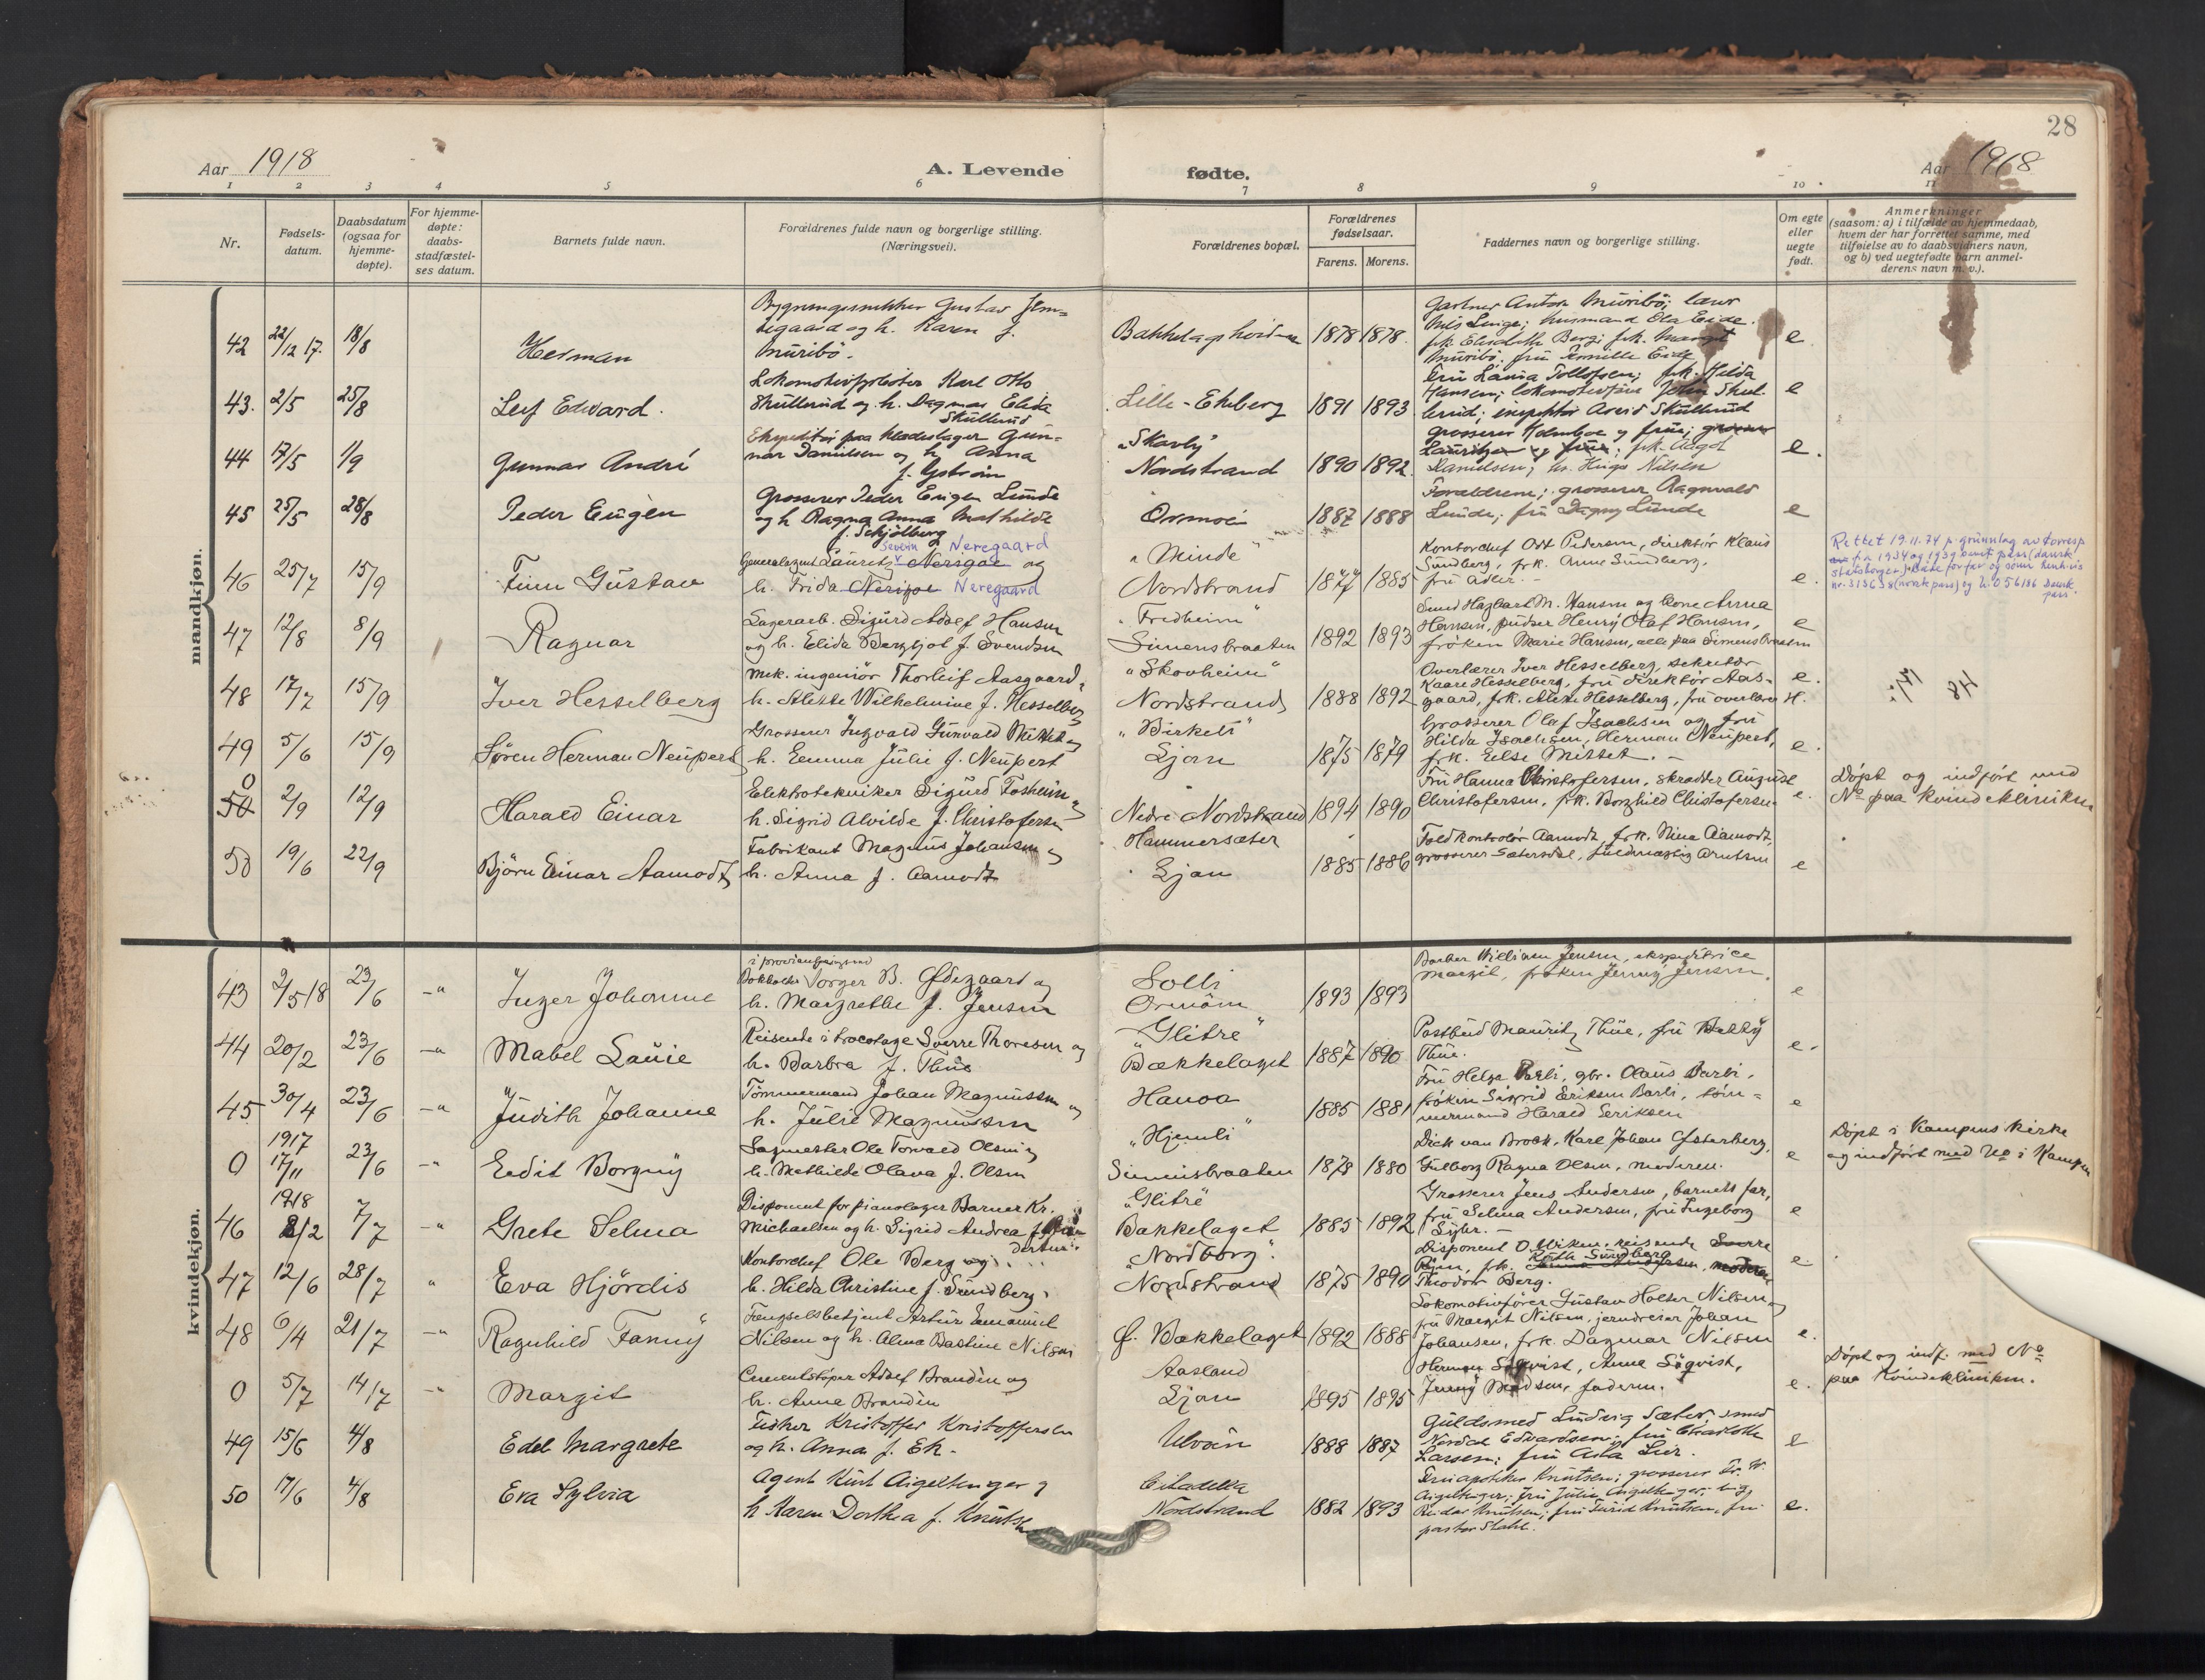 28
Aar 1918
A. Levende fødte.
Aar 1918
1 2 3 4 5 6 7 8 9 10 11
Nr.
Fødsels-
datum.
Daabsdatum
(ogsaa for
hjemme-
døpte).
For hjemme-
døpte:
daabs-
stadfæstel-
ses datum.
Barnets fulde navn.
Forældrenes fulde navn og borgerlige stilling.
(Næringsvei).
Forældrenes bopæl.
Forældrenes
fødselsaar.
Farens. Morens.
Faddernes navn og borgerlige stilling.
Om egte
eller
uegte
født.
Anmerkninger
(saasom: a) i tilfælde av hjemmedaab,
hvem der har forrettet samme, med
tilføielse av to daabsvidners navn,
og b) ved uegtefødte barn anmel-
derens navn m. v.).
mandkjøn.
42 22/12 17. 18/8 Herman
Gustav
og h. Karen f.
Muribö.
1878 1878.
Gartner Anton Muribö;
husmand Ola Eide.
frk. Elisabeth Berg; frk. Margit
Muribö. fru Eide
e.
43. 2/5 25/8 Leif Edward.
Karl Otto
Skullerud og h. Dagmar Elida
Skullerud
Lille-Ekeberg 1891 1893
Fru Tollofsen; frk. Hilda
Hansen; lokomotivfører John Skul-
lerud; inspektør Skullerud
e
44 17/5 1/9 Gunnar André
Ekspeditør paa klædeslager Gun-
nar Danielsen og h. Anna
f. Gström
"Skavly"
Nordstrand 1890 1892.
grosserer Holmboe og frue; grosserer
Lauritzen og frue; frk. Aagot
Danielsen; hr. Hugo Nilsen
e.
45 25/5 28/8 Peder Eugèn
Grosserer Peder Eugen Lunde
og h Ragna Anna Mathilde
f. Schjölberg
Ormöen 1887 1888
Forældrene; grosserer Ragnvald
Lunde; fru Dagny Lunde
e
46 25/7 15/9 Finn Gustav
Severin v. Neregaard
Generalagent Lauretz Nersgae og
h. Frida Nerigae Neregaard
"Minde"
Nordstrand 1877 1885
Kontorchef Odt Pedersen, direktör Klaus
Sundberg, frk. Anne Sundberg.
fru Adler.
e.
Rettet 19.11.74 p. grunnlag av
fra 1934 og 1939 samt pass (dansk
statsborger)
nr. 313638 (norsk pass) og 056186 Dansk
pass.
47 12/8 8/9 Ragnar
Lagerarb. Sigurd Adolf Hansen
og h. Elida Bergljot f. Svendsen
"Fredheim"
Simensbraaten 1892 1893
Smed Hagbart M. Hansen og kone Anna
Hansen, pudser Henry Olaf Hansen,
fröken Marie Hansen, alle paa Simensbraaten
e
48 17/7 15/9 Iver Hesselberg
Mek. ingeniör Thorleif Aasgaard,
h. Alette Wilhelmine f. Hesselberg
"Skovheim"
Nordstrand 1888 1892
Overlærer Iver Hesselberg, sekretær
Kaare Hesselberg, fru direktör Aas-
gaard, frk. Hesselberg, fru overlærer H.
e.
84
49 5/6 15/9 Sören Herman Neupert
Grosserer Ingvald Gunvald Mittet og
h. Emma Julie f. Neupert
"Birkeli"
Ljan 1875 1879
Grosserer Olaf Isachsen og fru
Hilda Isachsen, Herman Neupert,
frk. Else Mittet.
e.
0
50 2/9 12/9 Harald Einar
Elektrotekniker Sigurd Fosheim og
h. Sigrid Alvilde f. Christofersen
Nedre Nordstrand 1894 1890
Fru Hanna Christofersen, skrædder August
Christofersen, frk. Borghild Christofersen
e.
Döpt og indfört med
No paa Kvindekliniken
50 19/6 22/9 Björn Einar Aamodt
Fabrikant Magnus Johansen og
h. Anna f. Aamodt
Hammersæter
Ljan 1885 1886
Toldkontrolör Aamodt, frk. Nina Aamodt,
grosserer Sætersdal, fuldmægtig Arntsen
e
kvindekjøn.
43 2/5 18 23/6 -"- Inger Johanne
Bokholder Jorger B. Ödegaard og
h. Margrethe f. Jensen
Solli
Ormöen 1893 1893
Barber William Jensen, ekspeditrice
Margit, fröken Jenny Jensen.
e
44 20/2 23/6 -"- Mabel Lauie
Reisende i trecotage Sverre Thoresen og
h. Barbra f. Thue
"Glitre"
Bækkelaget 1887 1890
Postbud Mauritz Thue, fru Betty
Thue.
e.
45 30/4 23/6 -"- Judith Johanne
Tömmermand Johan Magnussen og
h. Julie Magnussen
Hanoa 1885 1881
Fru Helga Barli, gbr. Olaus Barli,
fröken Sigrid Eriksen Barli, töm-
mermand Harald Eriksen
e
0 1917 17/11 23/6 -"- Edit Borgny
Sagmester Ole Torvald Olsen og
h. Mathilde Olava f. Olsen
"Hjemli"
Simensbraaten 1878 1880
Dick van Brock, Karl Johan Österberg,
Gulborg Ragna Olsen, moderen.
e
Döpt i Kampens kirke
og indfört med No i Kampen
46 1918 8/2 7/7 -"- Grete Selma
Disponent for pianolager Barner Kr.
Michaelsen og h. Sigrid Andrea f.
"Glitre"
Bækkelaget 1885 1892
Grosserer Jens Andersen, barnets far,
fru Selma Andersen, fru Ingeborg
e
47 12/6 28/7 " Eva Hjördis
Kontorchef Ole Berg og
h. Hilda Christine f. Sundberg.
"Nordborg".
Nordstrand 1875 1890
Disponent O. Wiken, reisende Sverre
frk. Ruth Sundberg
Theodor Berg.
e
48 6/4 21/7 -"- Ragnhild Fanny
Fængselsbetjent Artur Emanuel
Nilsen og h. Alma Bastine Nilsen
Ö. Bækkelaget 1892 1888
Lokomotivförer Gustav Holter Nilsen og
fru Margit Nilsen, jerndreier Johan
Johansen, frk. Dagmar Nilsen
e.
0 5/7 14/7 -"- Margit
Cementstöper Adolf Brandèn og
h. Anna Brandèn
Aasland
Ljan 1895 1895
Herman Sögvist, Anna Sögvist,
Jenny Madsen, faderen.
e.
Döpt og indf. med No
paa Kvindekliniken.
49 15/6 4/8 Edel Margrete
Fisker Kristoffer Kristoffersen
og h. Anna f. Ek.
Ulvöen 1888 1887
Guldsmed Ludvig Sæter, smed
Nordal Edvardsen; fru Charlotte
Larsen; fru
e
50 17/6 4/8 Eva Sylvia
Agent Kurt Aigeltinger og
h Karen Dorthea f. Knutsen
Citadella
Nordstrand 1882 1893
Fru apotheker Knutsen; grosserer Fr. W.
Aigeltinger; fru Julie Aigeltinger;
Reidar Knutsen; fru Turid Knutsen, fru
pastor Stahl.
e.